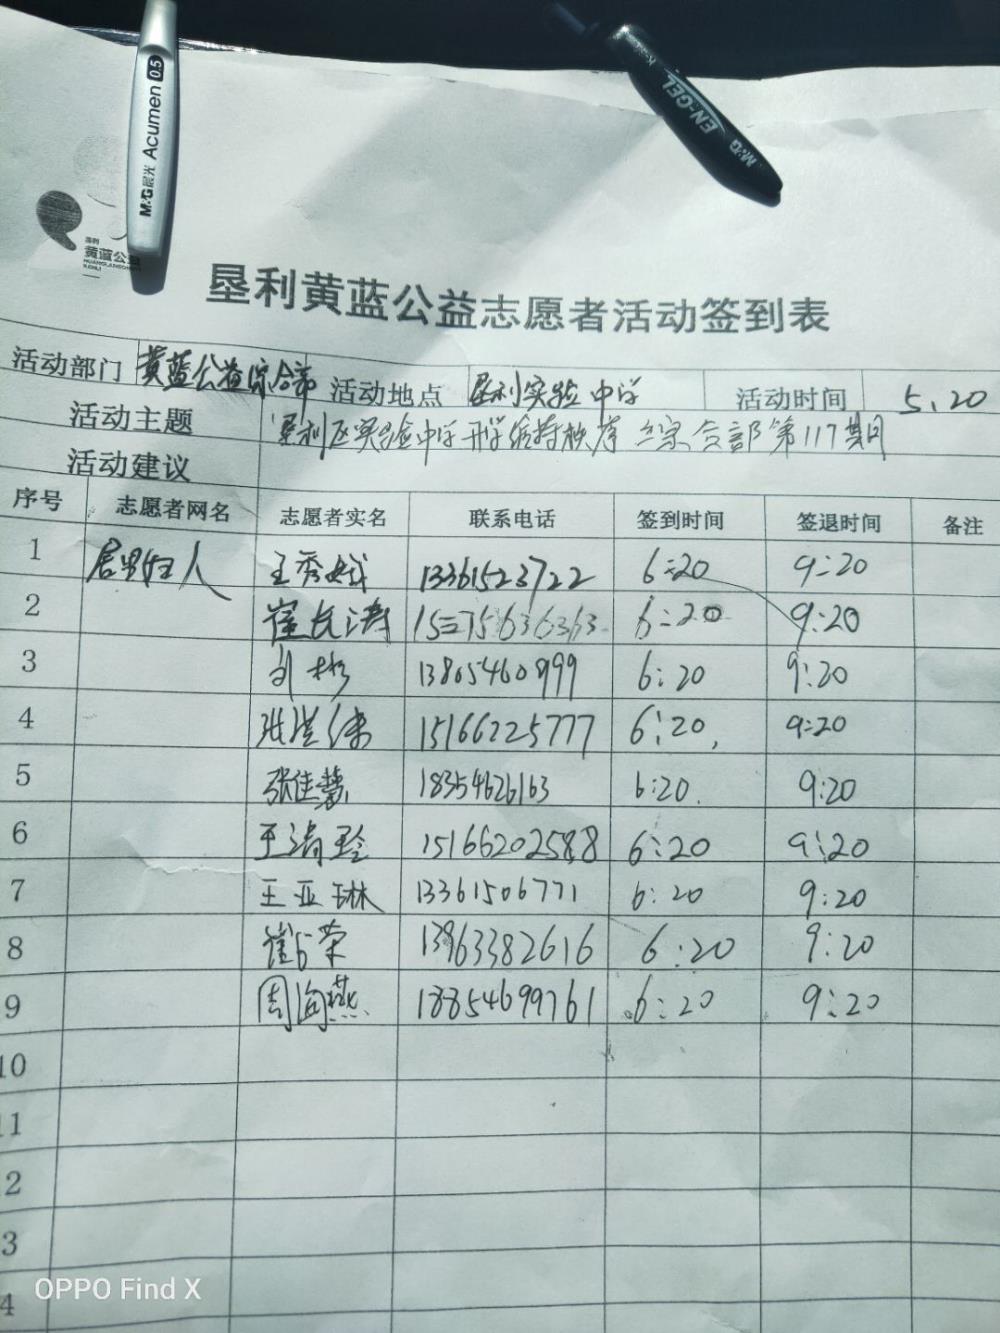 M&G晨光 Acumen 0.5
EN-GEL M&G
垦利
黄蓝公益
垦利黄蓝公益志愿者活动签到表
活动部门 黄蓝公益综合部 活动地点 垦利实验中学 活动时间 5.20
活动主题 垦利区实验中学开学维持秩序 综合部第117期
活动建议
序号 志愿者网名 志愿者实名 联系电话 签到时间 签退时间 备注
1 人 王秀娥 13361523722 6:20 9:20
2 崔长涛 15375636363 6:20 9:20
3 刘彬 13805460999 6:20 9:20
4 张 15166225777 6:20 9:20
5 张佳慧 18354626163 6:20 9:20
6 王清玲 15166202588 6:20 9:20
7 王亚琳 13361506771 6:20 9:20
8 崔荣 13963382616 6:20 9:20
9 周海燕 18854699761 6:20 9:20
10
11
2
3
4
OPPO Find X